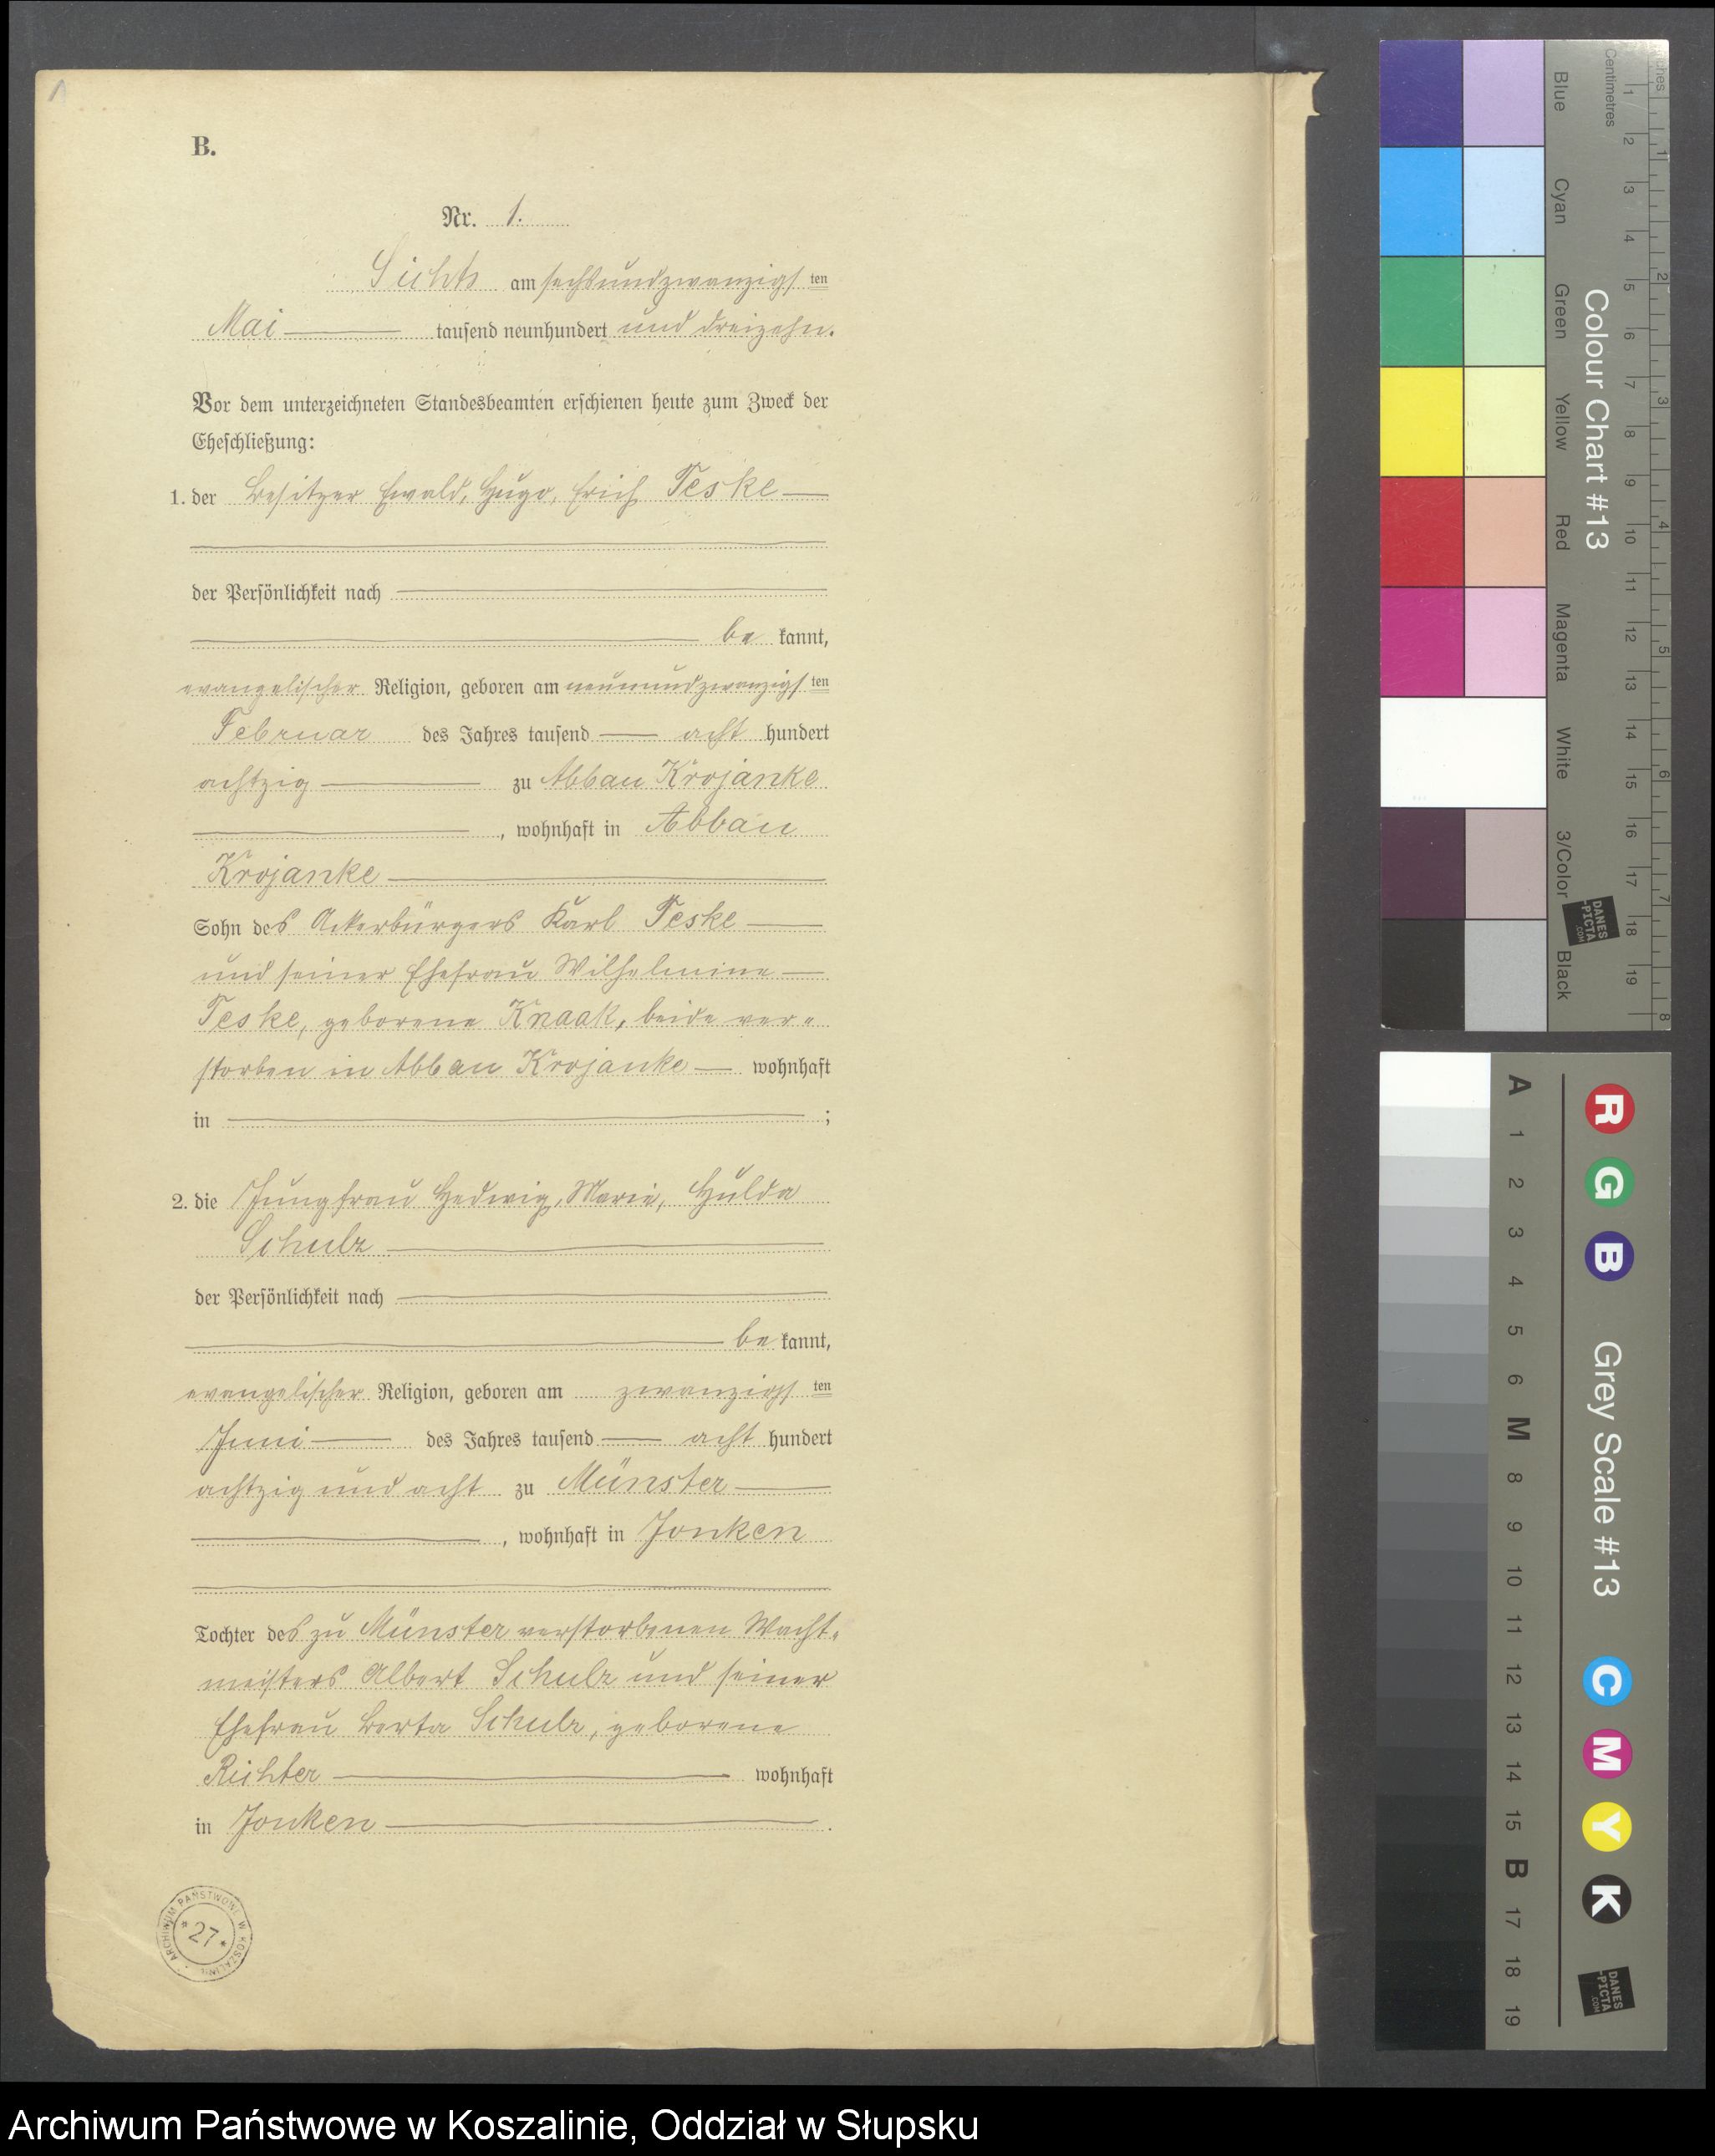 B.
Nr. 1.
Sichts am sechsundzwanzigsten
Mai tausend neunhundert und dreizehn.
Vor dem unterzeichneten Standesbeamten erschienen heute zum Zweck der
Eheschließung:
1. der Besitzer Ewald, Hugo, Erich Teske
der Persönlichkeit nach
be kannt,
evangelischer Religion, geboren am neunundzwanzigsten
Februar des Jahres tausend acht hundert
achtzig zu Abbau Krojanke
, wohnhaft in Abbau
Krojanke
Sohn des Ackerbürgers Karl Teske
und seiner Ehefrau Wilhelmine
Teske, geborene Knaak, beide ver„
storben in Abbau Krojanke wohnhaft
in ;
2. die Jungfrau Hedwig, Marie, Hulda
Schulz
der Persönlichkeit nach
be kannt,
evangelischer Religion, geboren am zwanzigsten
Juni des Jahres tausend acht hundert
achtzig und acht zu Münster
, wohnhaft in Jonken
Tochter des zu Münster verstorbenen Wacht„
meisters Albert Schulz und seiner
Ehefrau Berta Schulz, geborene
Richter wohnhaft
in Jonken .
ARCHIWUM PAŃSTWOWE W KOSZALINIE
*27*
Archiwum Państwowe w Koszalinie, Oddział w Słupsku
Colour Chart #13
Blue
Cyan
Green
Yellow
Red
Magenta
White
3/Color
Black
Centimetres
1 2 3 4 5 6 7 8 9 10 11 12 13 14 15 16 17 18 19
1 2 3 4 5 6 7 8
DANES
-PICTA
.COM
Grey Scale #13
R G B C M Y K
A 1 2 3 4 5 6 M 8 9 10 11 12 13 14 15 B 17 18 19
DANES
-PICTA
.COM